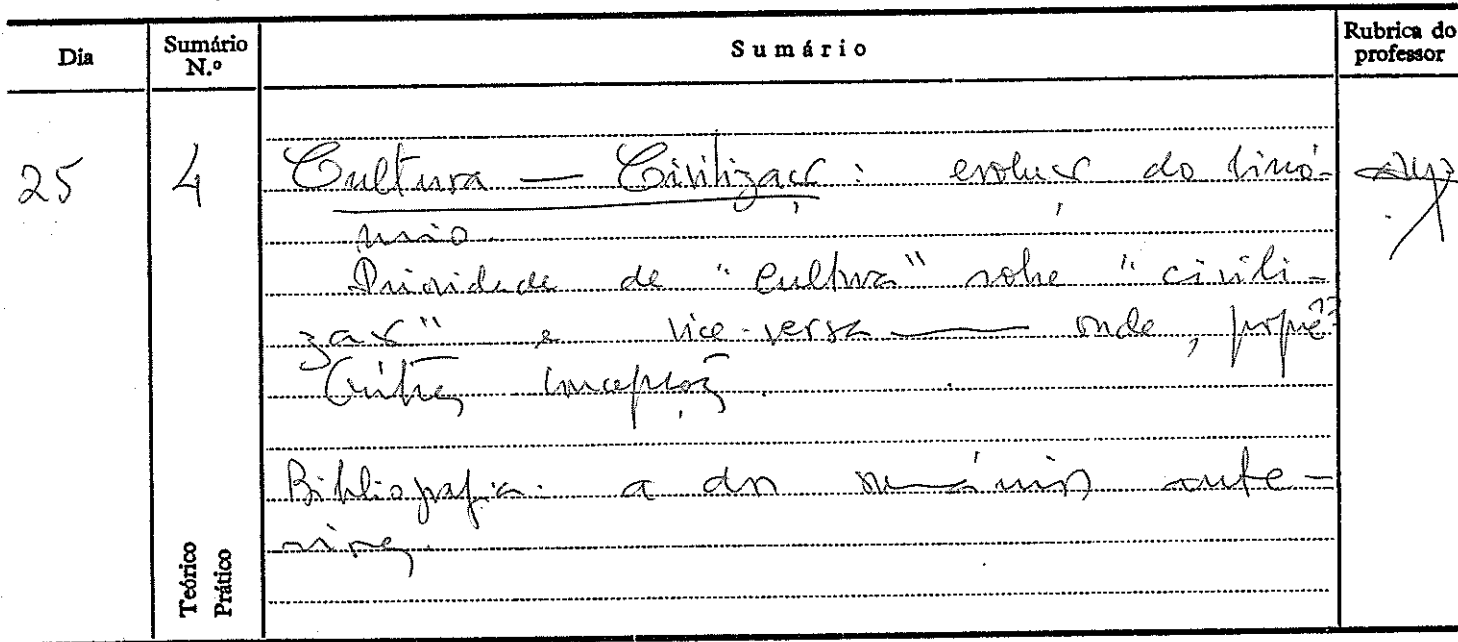 Dia
Sumário N.º
Sumário
Rubrica do professor
25
4
Cultura — Civilização: evolução do binó-
mio.
Prioridade de "Cultura" sobre "civili-
zação" e vice-versa — onde, porquê?
Outras concepções.
Bibliografia: a dos sumários ante-
riores.
Teórico
Prático